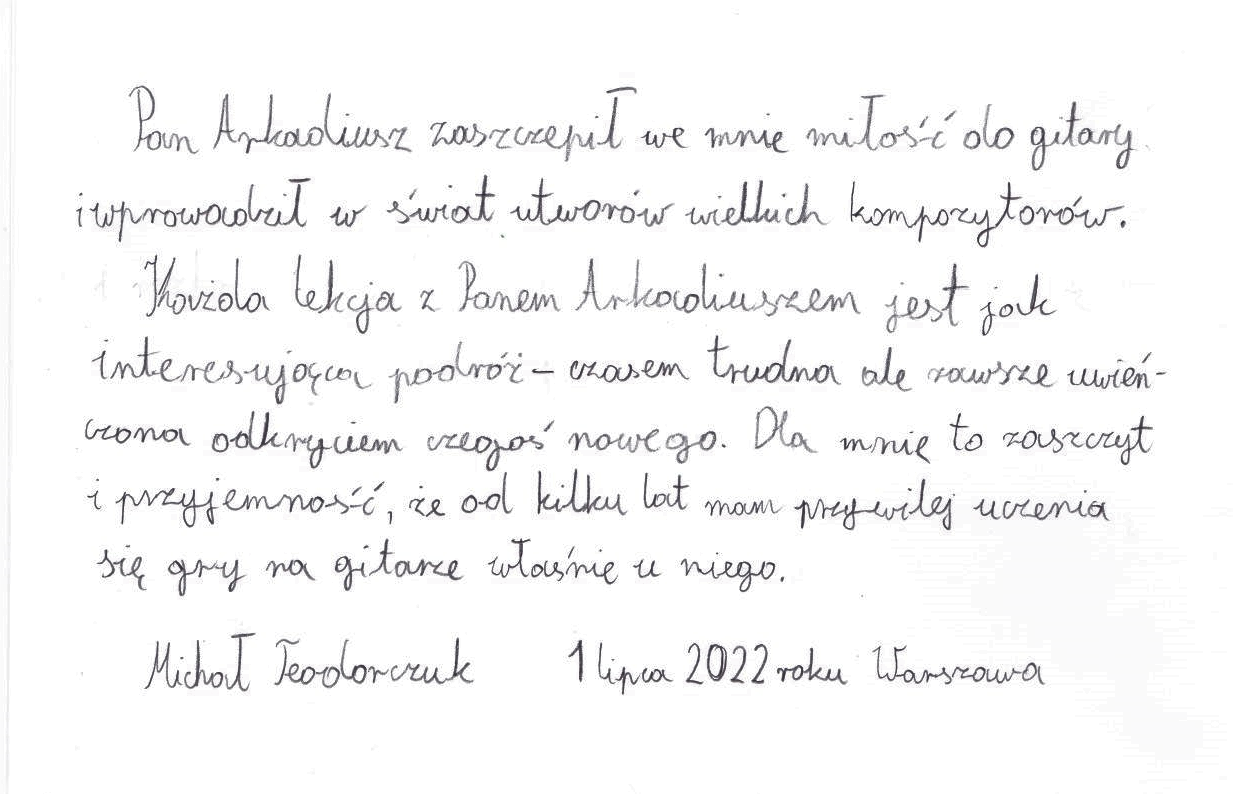 Pan Arkadiusz zaszczepił we mnie miłość do gitary
i wprowadził w świat utworów wielkich kompozytorów.
Każda lekcja z Panem Arkadiuszem jest jak
interesująca podróż – czasem trudna ale zawsze uwień-
czona odkryciem czegoś nowego. Dla mnie to zaszczyt
i przyjemność, że od kilku lat mam przywilej uczenia
się gry na gitarze właśnie u niego.
Michał Teodorczuk 1 lipca 2022 roku Warszawa